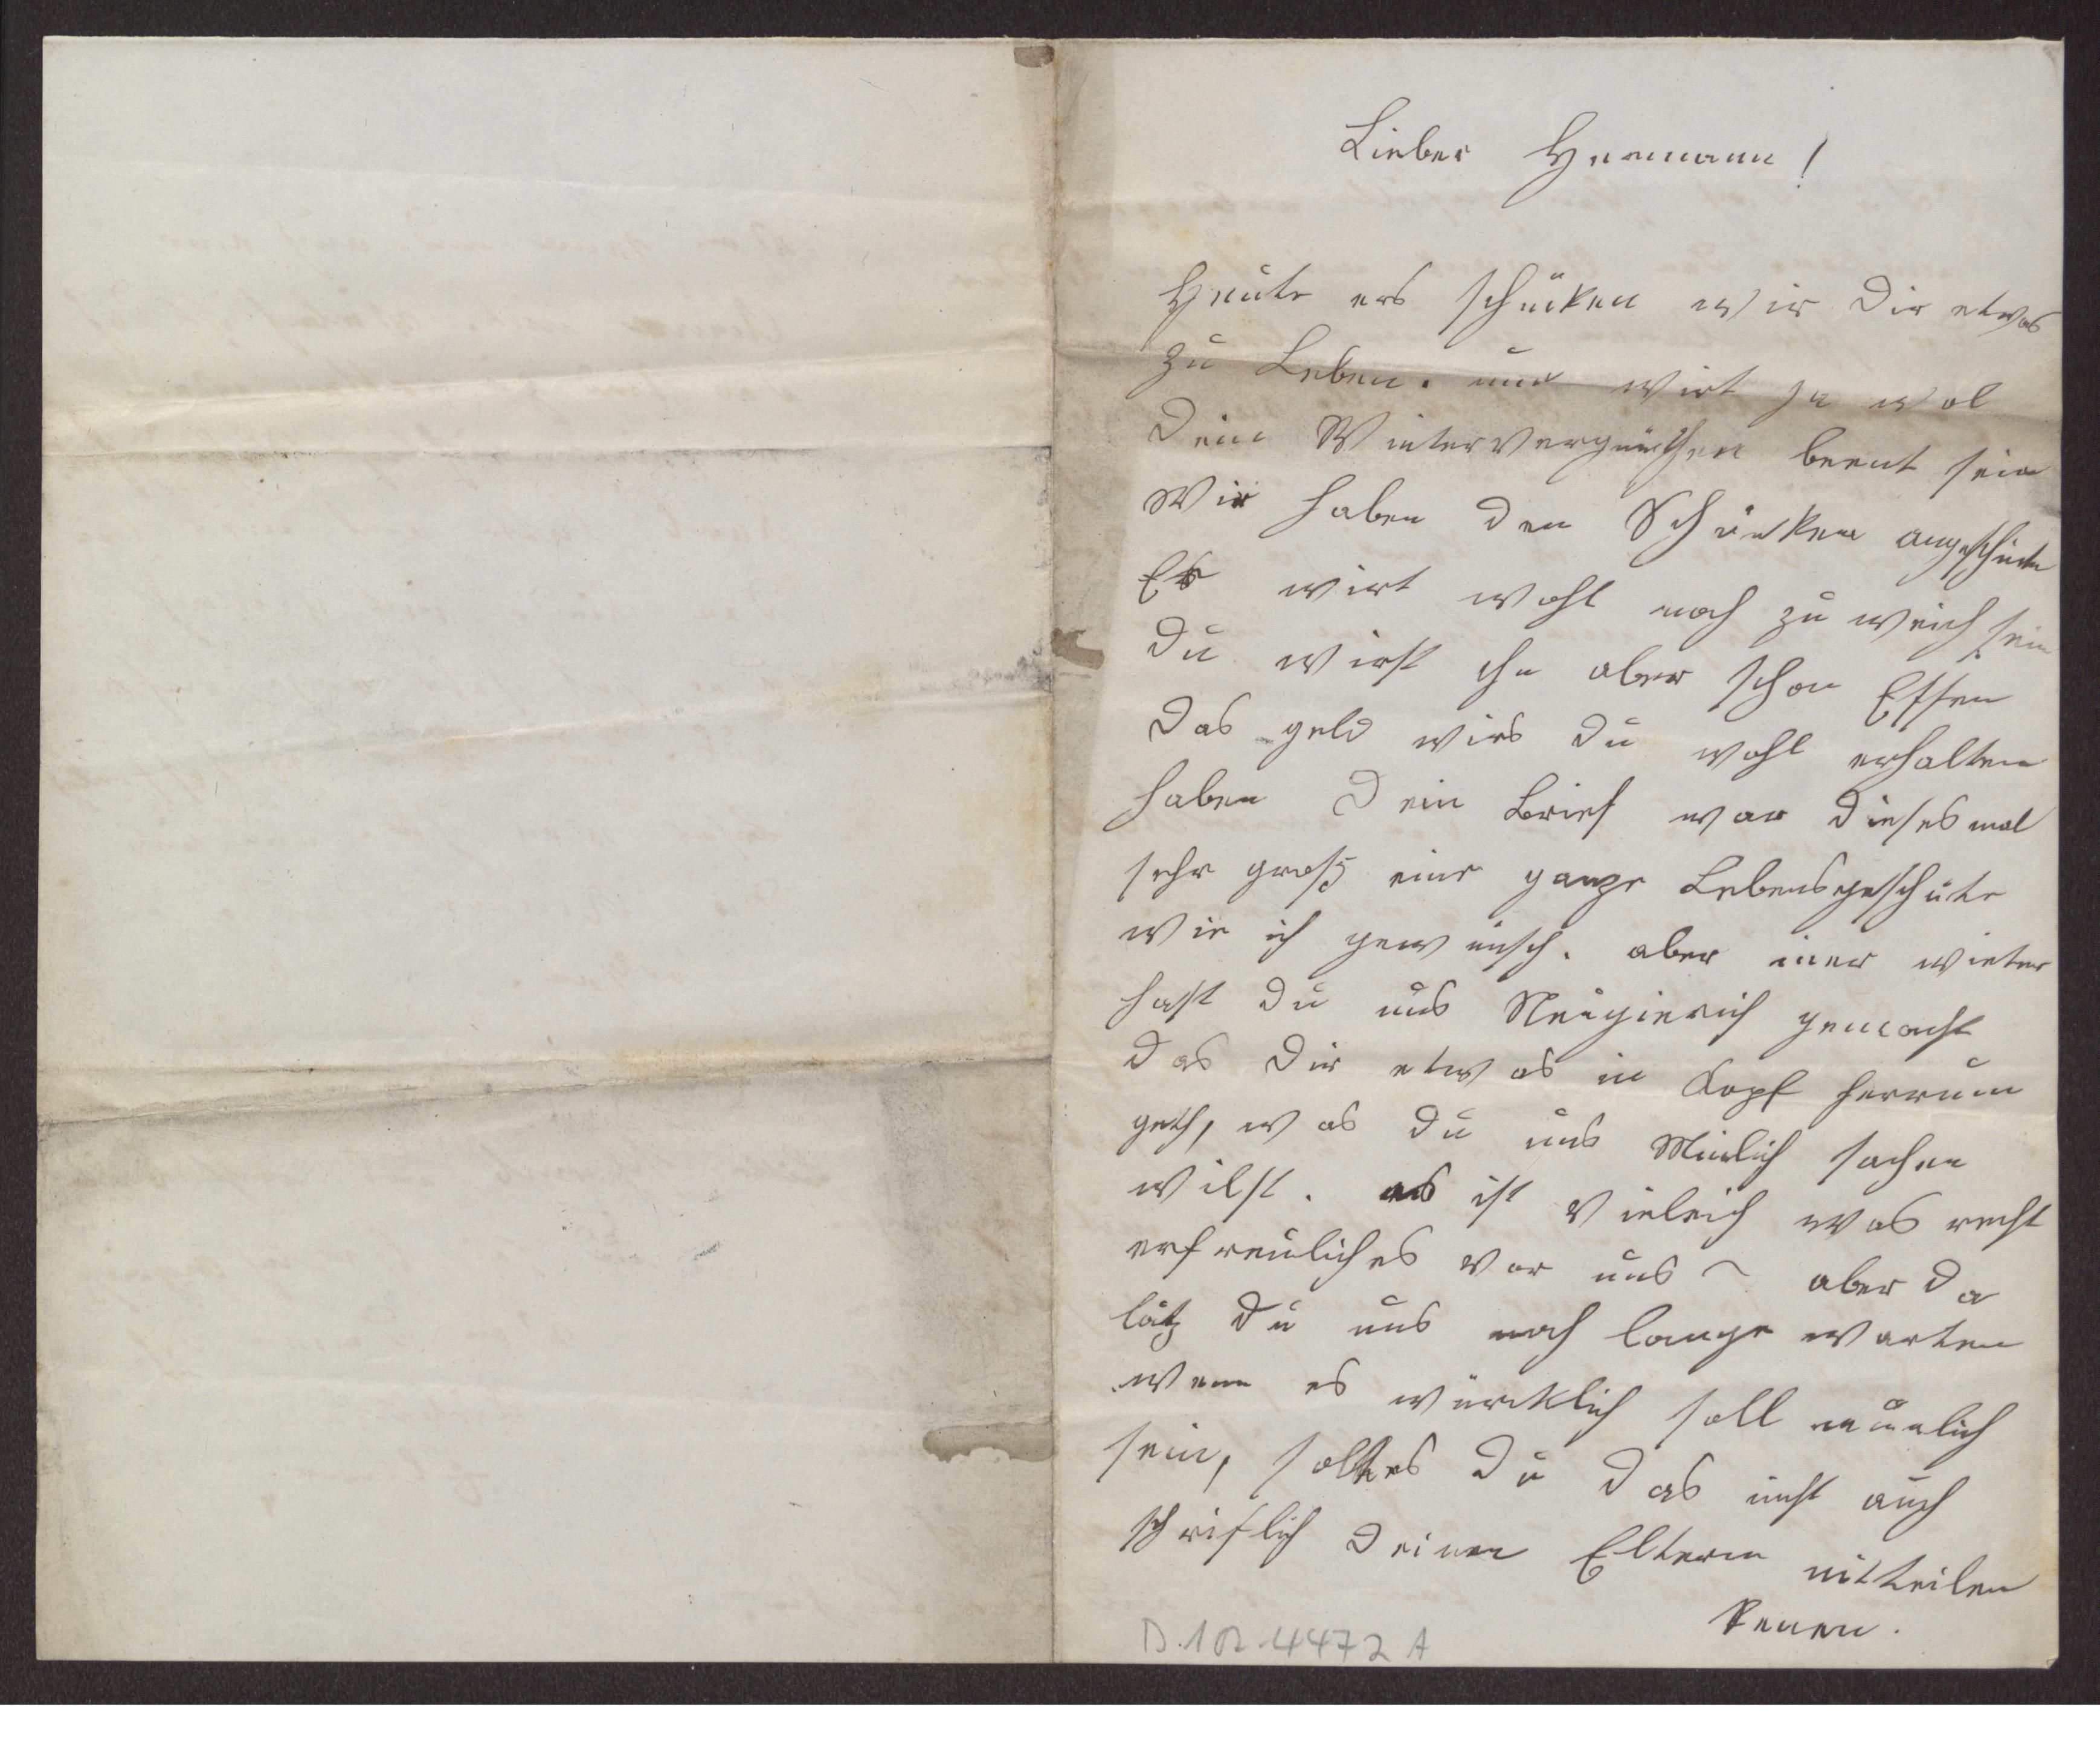 Lieber Hermann!
Heute ers schücken wir Dir etwas
zu Leben. nun wirt ja wol
Dein Wintervergnüchen beent sein
Wir haben den Schünken angeschnitten
Er wirt wohl noch zu weich sein
Du wirst ihn aber schon Essen
Das geld wirs Du wohl erhalten
haben Dein Brief war dieses mal
sehr groß eine ganze Lebensgeschüte
wie ich gewünsch. aber imer wieter
hast Du uns Neugierich gemacht
das Dir etwas in Kopf herrum
geth, was Du uns Münlich sachen
wilst. es ist vieleich was recht
erfreuliches vor uns aber da
läß Du uns noch lange warten
wenn es würcklich soll münlich
sein, soltes Du das nicht auch
schriflich Deinen Eltern mitteilen
kenen.
D.102.4472 A